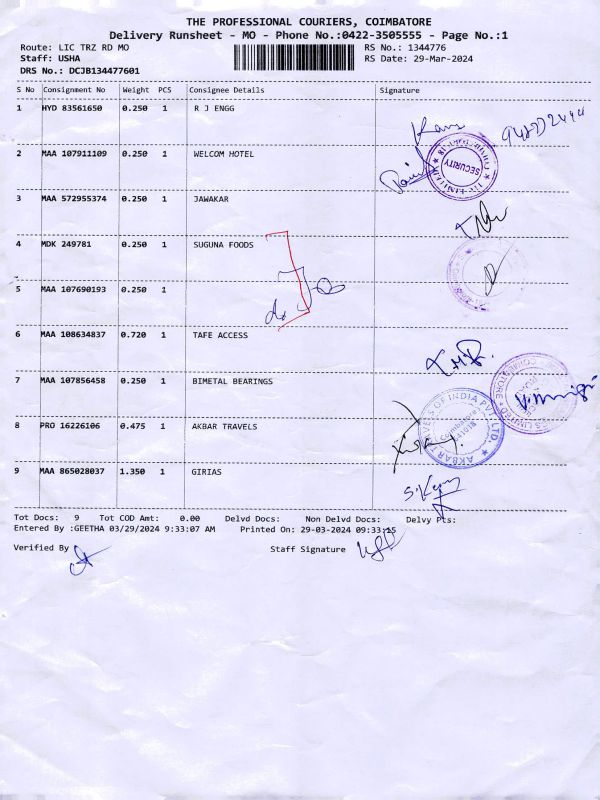 THE PROFESSIONAL COURIERS, COIMBATORE
Delivery Runsheet - MO - Phone No.:0422-3505555 - Page No.:1
Route: LIC TRZ RD MO RS No.: 1344776
Staff: USHA RS Date: 29-Mar-2024
DRS No.: DCJB134477601
S No Consignment No Weight PCS Consignee Details Signature
1 HYD 83561650 0.250 1 R J ENGG
2 MAA 107911109 0.250 1 WELCOM HOTEL
SECURITY
3 MAA 572955374 0.250 1 JAWAKAR
4 MDK 249781 0.250 1 SUGUNA FOODS
5 MAA 107690193 0.250 1
6 MAA 108634837 0.720 1 TAFE ACCESS
7 MAA 107856458 0.250 1 BIMETAL BEARINGS
8 PRO 16226106 0.475 1 AKBAR TRAVELS
AKBAR TRAVELS OF INDIA PVT. LTD.
Coimbatore
9 MAA 865028037 1.350 1 GIRIAS
Tot Docs: 9 Tot COD Amt: 0.00 Delvd Docs: Non Delvd Docs: Delvy Pts:
Entered By :GEETHA 03/29/2024 9:33:07 AM Printed On: 29-03-2024 09:33:15
Verified By Staff Signature